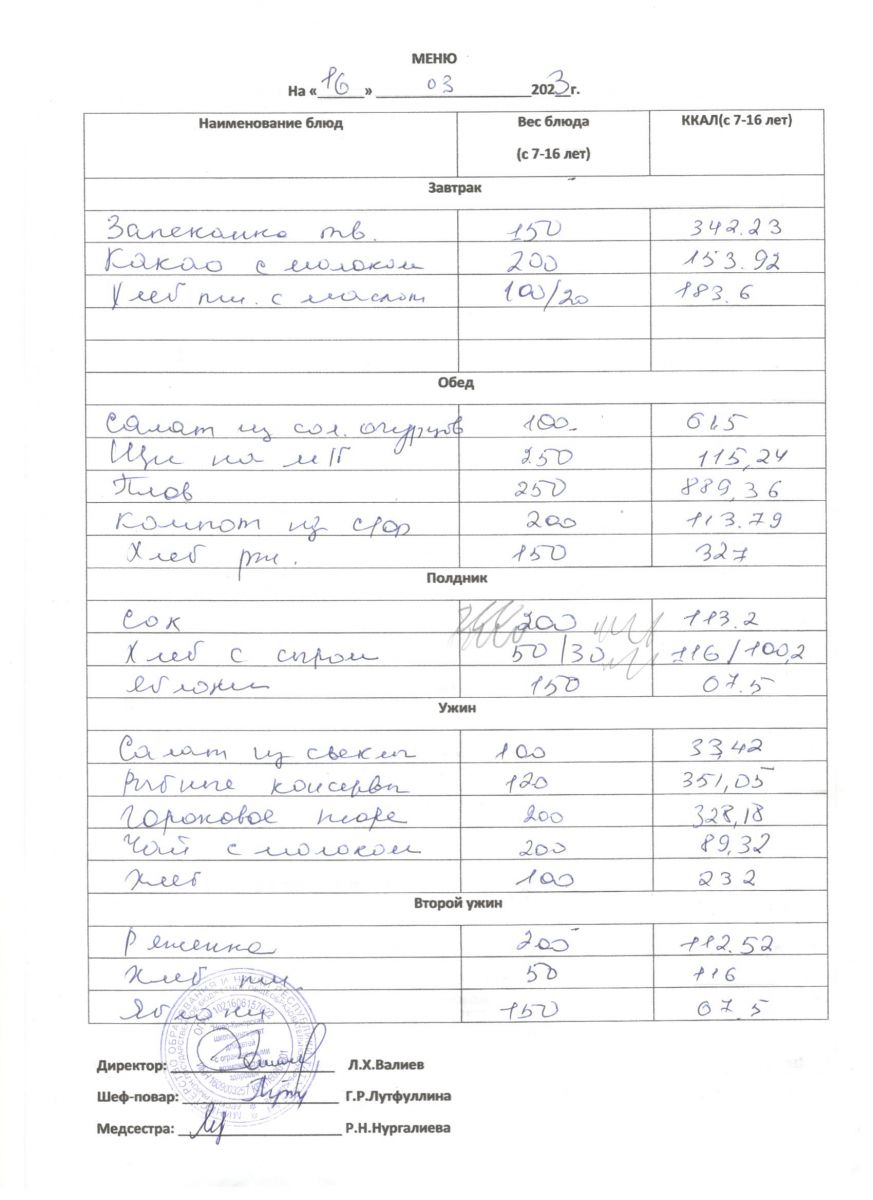 МЕНЮ
На «16» 03 2023г.
Наименование блюд Вес блюда (с 7-16 лет) ККАЛ(с 7-16 лет)
Завтрак
Запеканка тв. 150 342.23
Какао с молоком 200 153.92
Хлеб пш. с маслом 100/20 183.6
Обед
Салат из сол. огурцов 100 61.5
Щи на м/б 250 115,24
Плов 250 889,36
Компот из с/фр 200 113.79
Хлеб рж. 150 327
Полдник
Сок 200 113.2
Хлеб с сыром 50/30 116/100,2
Яблоки 150 67.5
Ужин
Салат из свеклы 100 33,42
Рыбные консервы 120 351,05
Гороховое пюре 200 328,18
Чай с молоком 200 89,32
Хлеб 100 232
Второй ужин
Ряженка 200 112.52
Хлеб пш. 50 116
Яблоки 150 67.5
Директор: Л.Х.Валиев
Шеф-повар: Г.Р.Лутфуллина
Медсестра: Р.Н.Нургалиева